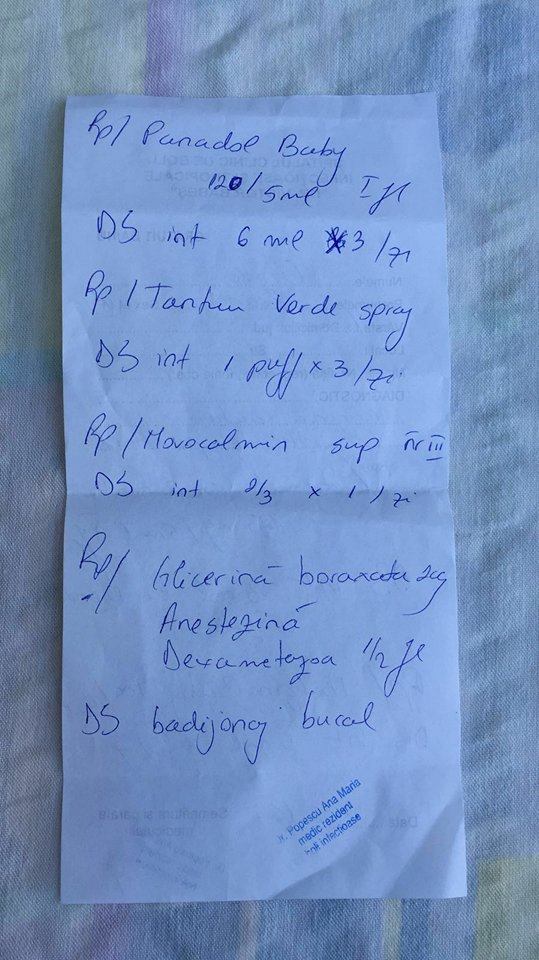 Rp/ Panadol Baby
120/5ml I fl
DS int 6 ml x 3/zi
Rp/ Tantum Verde spray
DS int 1 puff x 3/zi
Rp/ Novocalmin sup nr III
DS int 2/3 x 1/zi
Rp/ Glicerină boraxată 20g
Anestezină
Dexametazoa 1/2 fl
DS badijonaj bucal
Dr. Popescu Ana Maria
medic rezident
boli infectioase